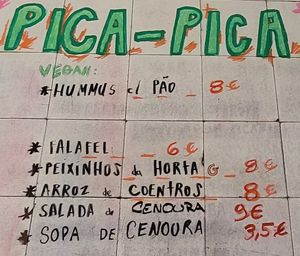 PICA-PICA
VEGAN:
* HUMMUS c/ PÃO _ 8€
* FALAFEL _ _ 6€
* PEIXINHOS da HORTA G _ 8€
* ARROZ de COENTROS _ 8€
* SALADA de CENOURA 9€
* SOPA DE CENOURA 3,5€